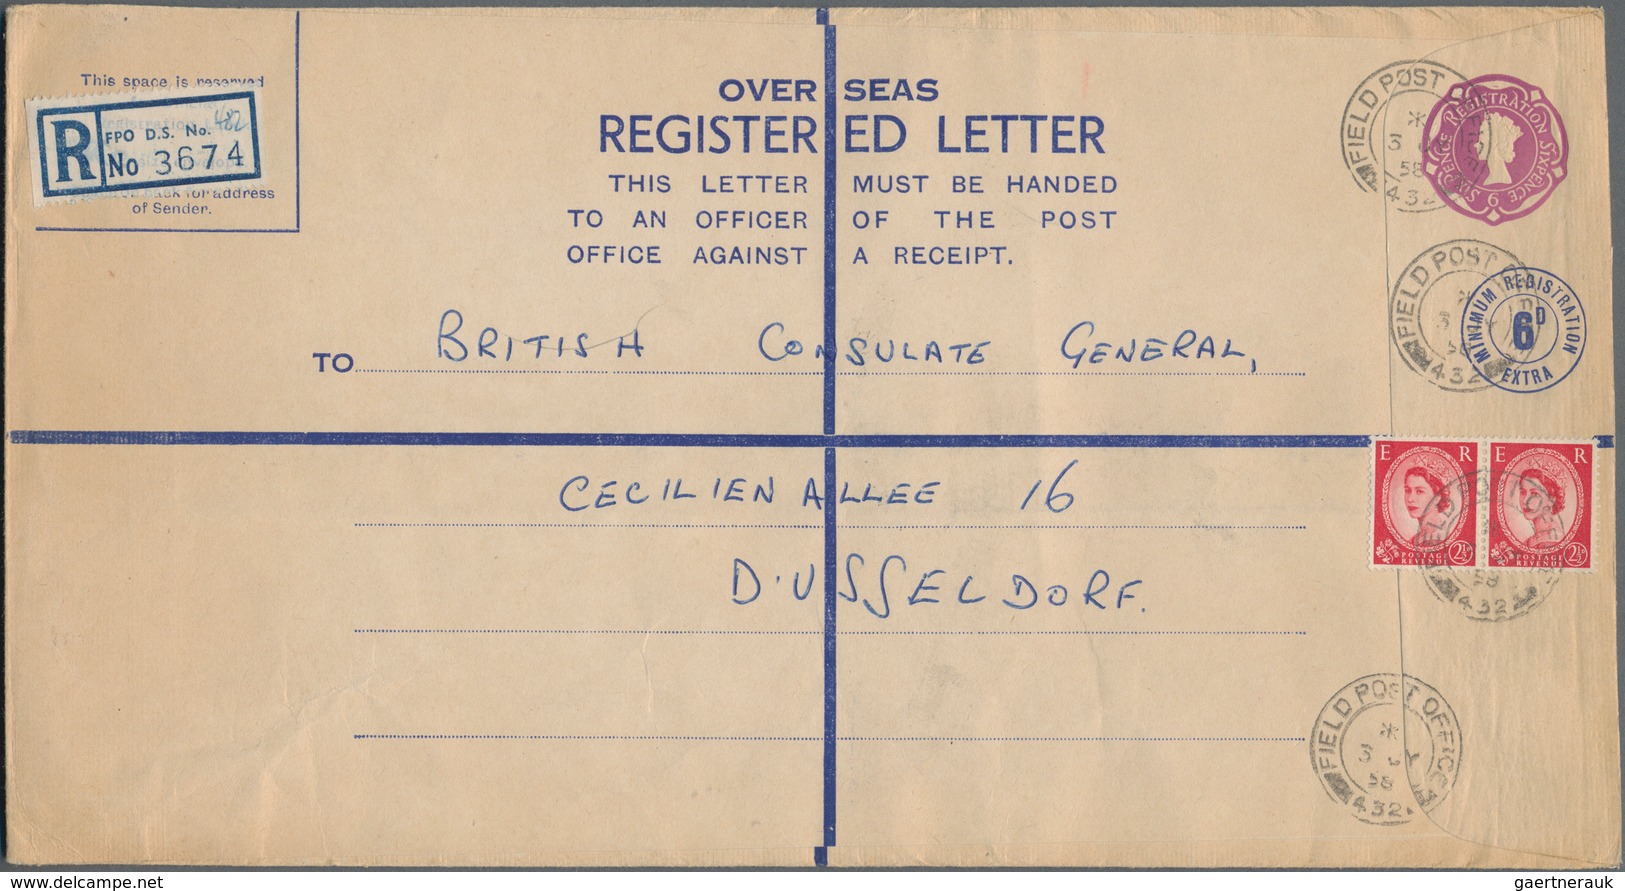 This space is reserved
Registration
back for address
of Sender.
R
FPO D.S. No. 482
No 3674
OVER SEAS
REGISTER ED LETTER
THIS LETTER MUST BE HANDED
TO AN OFFICER OF THE POST
OFFICE AGAINST A RECEIPT.
TO BRITISH CONSULATE GENERAL,
CECILIENALLEE 16
DUSSELDORF.
FIELD POST
3
58
432
REGISTRATION SIXPENCE
SIXPENCE 6
FIELD POST
432
MINIMUM REGISTRATION
6D
EXTRA
E R
POSTAGE
REVENUE
2½
E R
POSTAGE
REVENUE
2½
58
432
FIELD POST OFFICE
3
58
432
delcampe.net
gaertnerauk